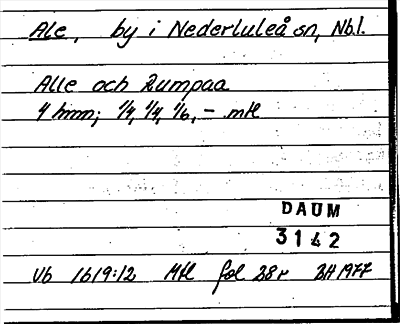 Ale, by i Nederluleå sn, Nb.l.
Alle och Rumpaa
4 hmn; 1/4, 1/4, 1/6, - mtl
DAUM
3142
Vb 1619:12 Mtl fol 28r BH 1977